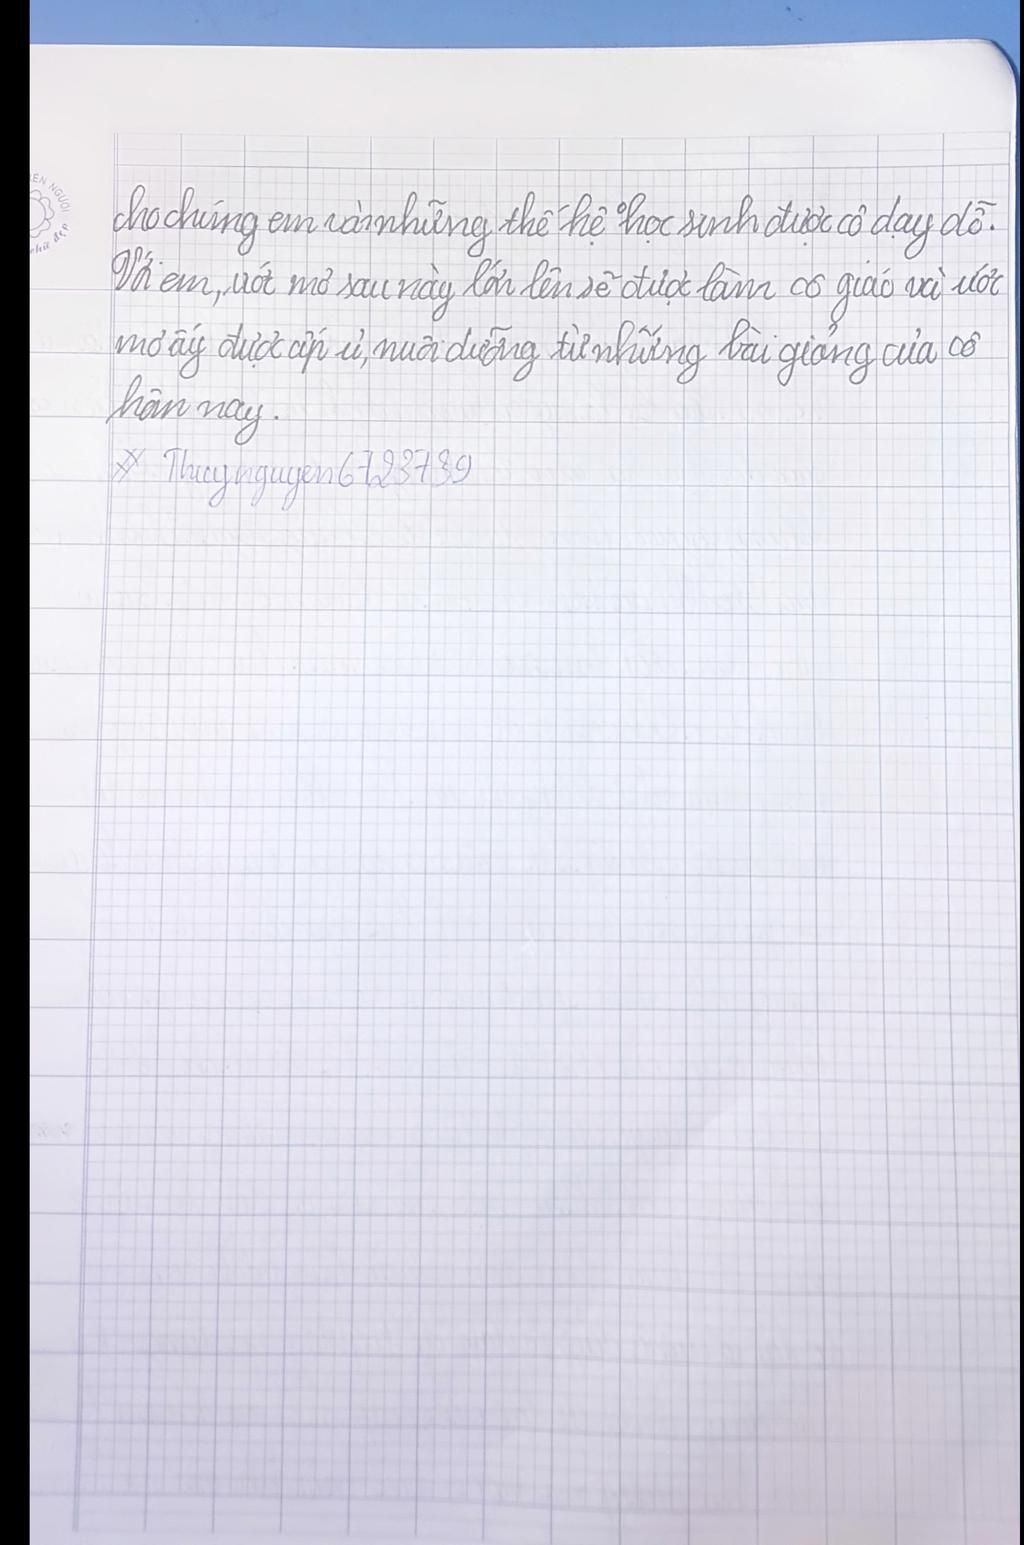 cho chúng em và những thế hệ học sinh được cô dạy dỗ.
Với em, ước mơ sau này lớn lên sẽ được làm cô giáo và ước
mơ ấy được ấp ủ, nuôi dưỡng từ những bài giảng của cô
hôm nay.
Thuynguyen6723739
EN NGƯỜI
chữ đẹp